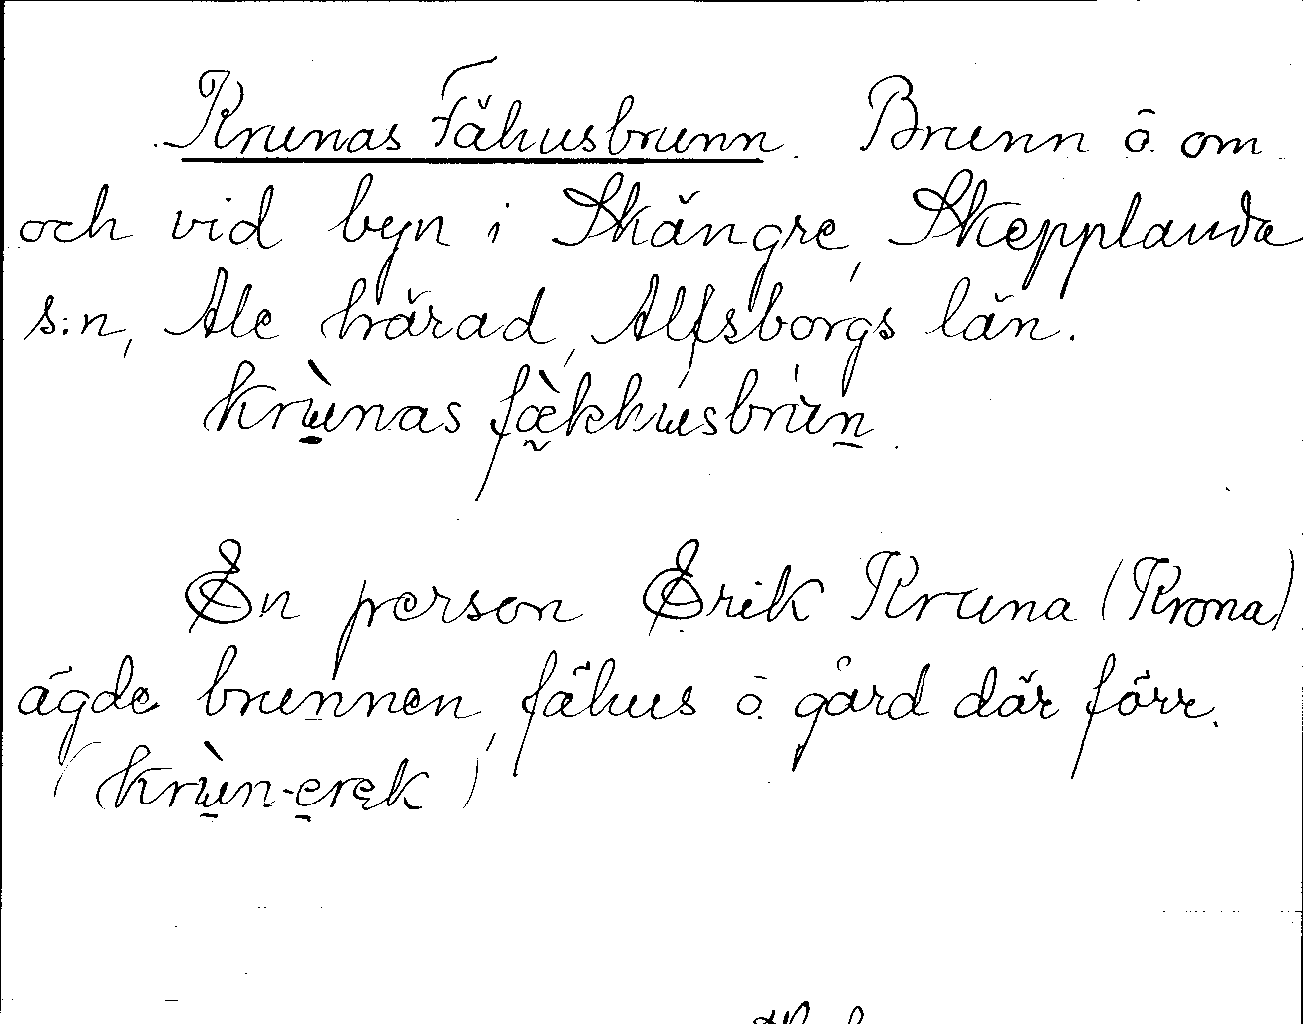 Krunas Fähusbrunn. Brunn ö. om
och vid byn i Skängre, Skepplanda
s:n, Ale härad, Älfsborgs län.
Krùnas fæ̀khusbrun.
En person Erik Kruna (Krona)
ägde brunnen, fähus ö. gård där förr.
(Krùn-erek)